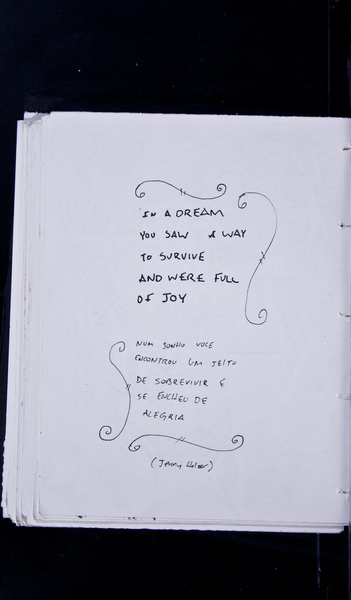 IN A DREAM
YOU SAW A WAY
TO SURVIVE
AND WERE FULL
OF JOY
NUM SONHO VOCE
ENCONTROU UM JEITO
DE SOBREVIVIR E
SE ENCHEU DE
ALEGRIA
(Jenny Holzer)